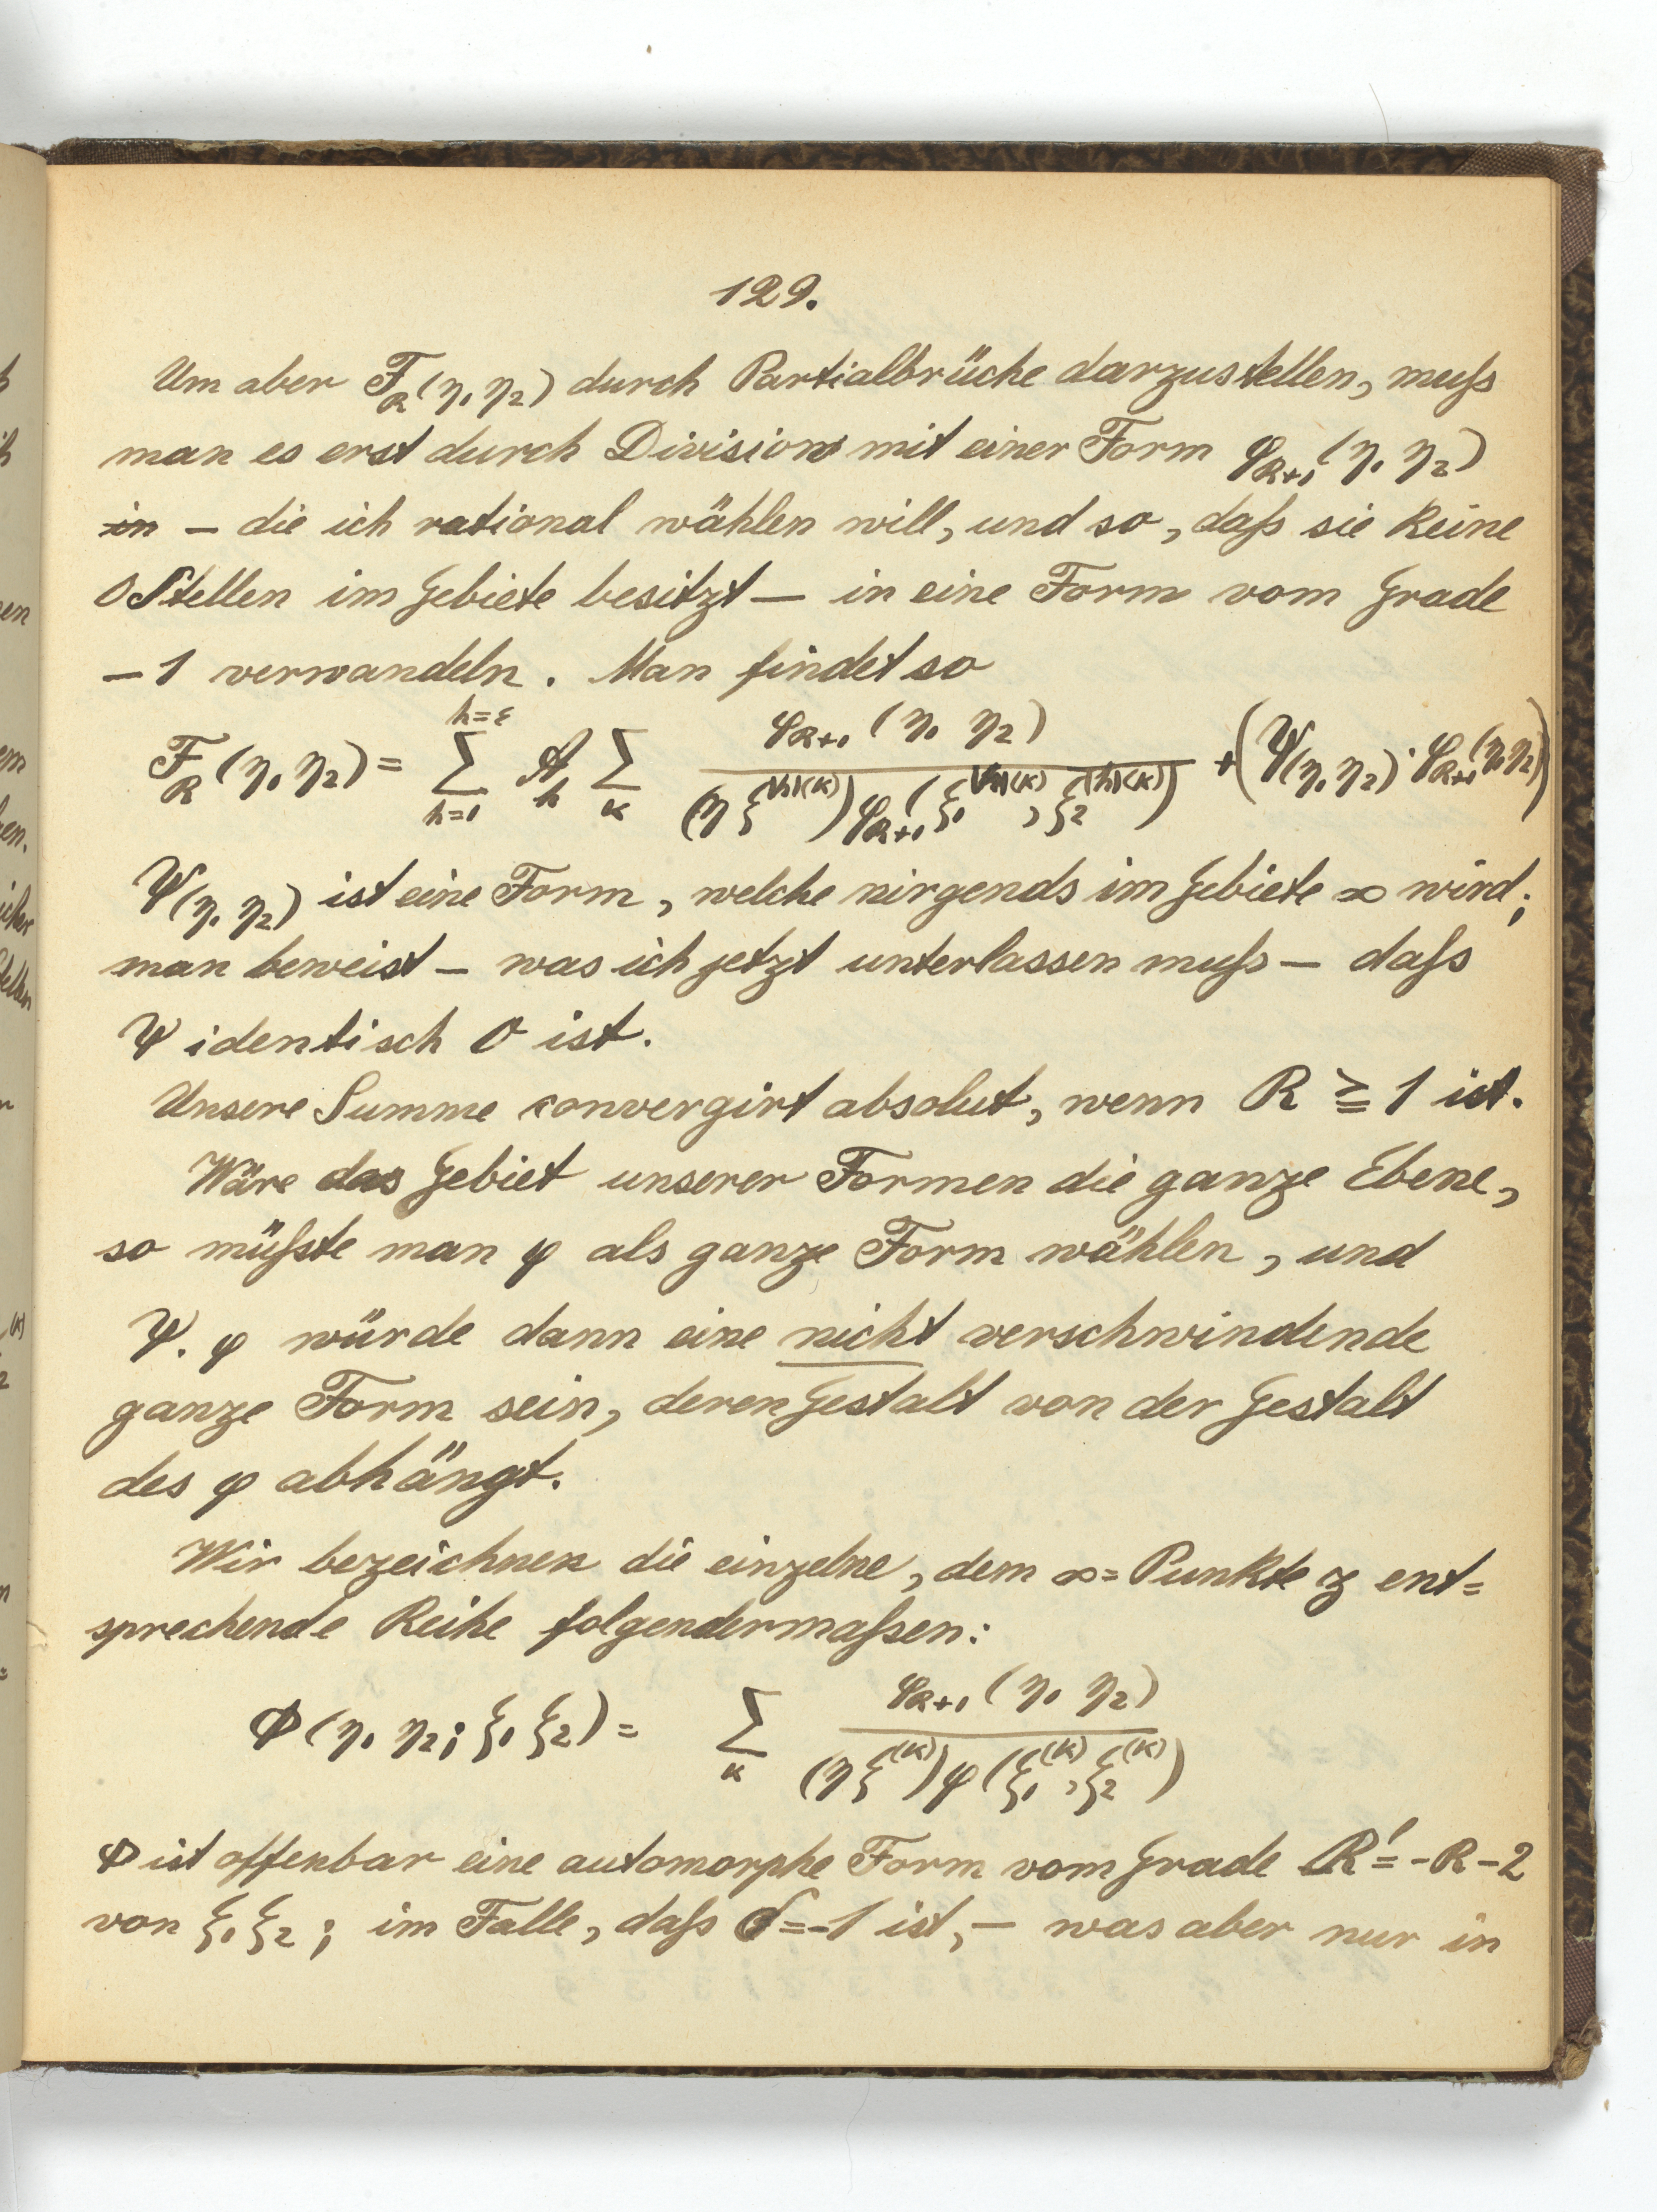 129.
Um aber F_R(η₁ η₂) durch Partialbrüche darzustellen, muſs
man es erst durch Division mit einer Form φ_{R+1}(η₁ η₂)
in – die ich rational wählen will, und so, daſs sie keine
0Stellen im Gebiete besitzt – in eine Form vom Grade
–1 verwandeln. Man findet so
F_R(η₁ η₂) = ∑_{h=1}^{h=ε} A_h ∑_κ φ_{R+1}(η₁ η₂) / (η ξ^{(h)(κ)}) φ_{R+1}(ξ₁^{(h)(κ)}, ξ₂^{(h)(κ)}) + (Ψ(η₁ η₂) · φ_{R+1}(η₁ η₂))
Ψ(η₁ η₂) ist eine Form, welche nirgends im Gebiete ∞ wird;
man beweist – was ich jetzt unterlassen muſs – daſs
Ψ identisch 0 ist.
Unsere Summe convergirt absolut, wenn R ≧ 1 ist.
Wäre das Gebiet unserer Formen die ganze Ebene,
so müſste man φ als ganze Form wählen, und
Ψ. φ würde dann eine nicht verschwindende
ganze Form sein, deren Gestalt von der Gestalt
des φ abhängt.
Wir bezeichnen die einzelne, dem ∞=Punkte ξ ent=
sprechende Reihe folgendermaſsen:
Φ(η₁ η₂; ξ₁ ξ₂) = ∑_κ φ_{R+1}(η₁ η₂) / (η ξ^{(κ)}) φ(ξ₁^{(κ)}, ξ₂^{(κ)})
Φ ist offenbar eine automorphe Form vom Grade R' = -R-2
von ξ₁ ξ₂; im Falle, daſs σ = -1 ist, – was aber nur in